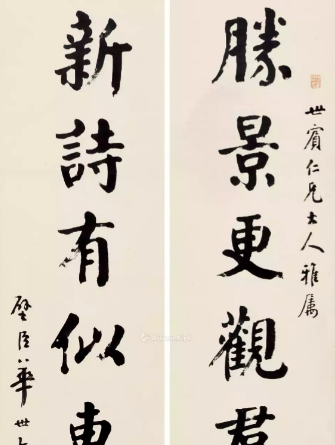 世賓仁兄大人雅屬
勝景更觀
新詩有似
璧臣華世